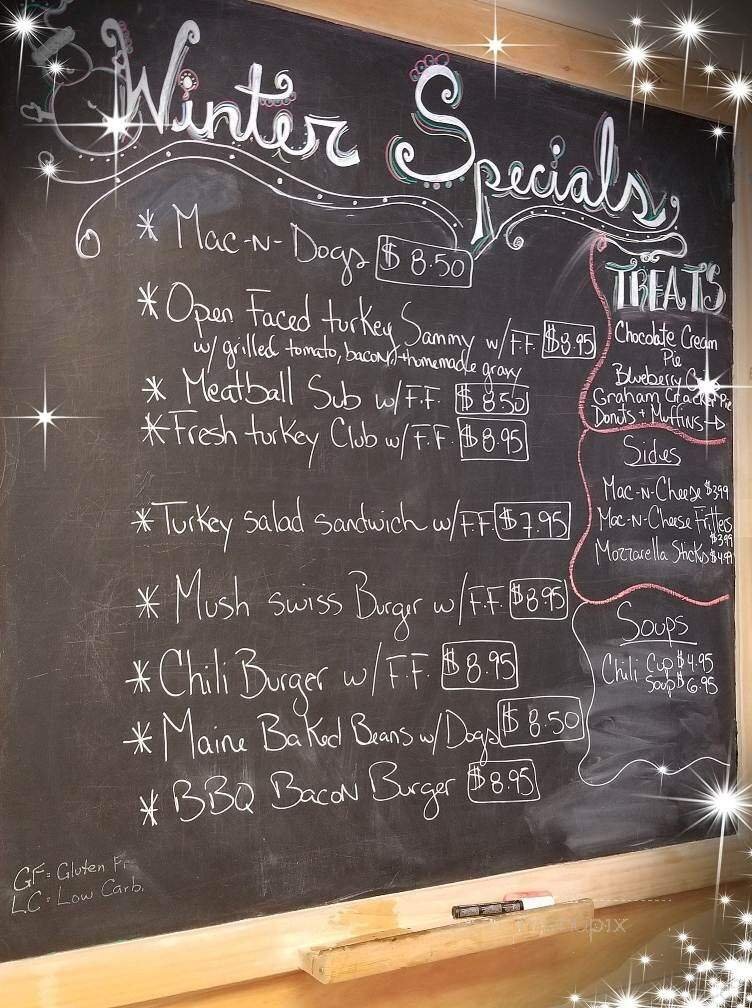 Winter Specials
* Mac-N-Dogs $8.50
* Open Faced turkey Sammy w/F.F. $8.95
w/ grilled tomato, bacon, + homemade gravy
* Meatball Sub w/F.F. $8.50
* Fresh turkey Club w/F.F. $8.95
* Turkey salad sandwich w/F.F. $7.95
* Mush swiss Burger w/F.F. $8.95
* Chili Burger w/F.F. $8.95
* Maine Baked Beans w/Dogs $8.50
* BBQ Bacon Burger $8.95
GF = Gluten Fr
LC = Low Carb.
TREATS
Chocolate Cream
Pie
Blueberry
Graham Cracker Pie
Donuts + Muffins →
Sides
Mac-N-Cheese $3.99
Mac-N-Cheese Fritters
$3.99
Mozzarella Sticks $4.99
Soups
Chili Cup $4.95
Soup $6.95